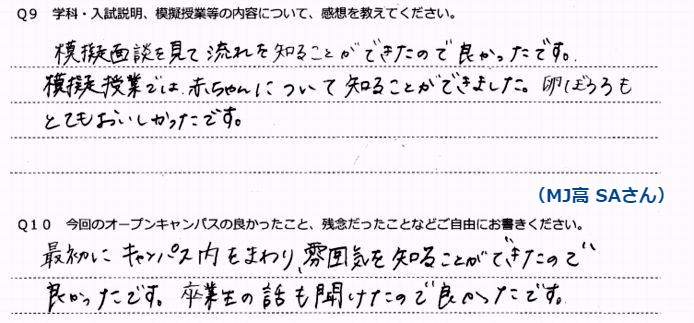 Q9 学科・入試説明、模擬授業等の内容について、感想を教えてください。
模擬面談を見て流れを知ることができたので良かったです。
模擬授業では、赤ちゃんについて知ることができました。卵ぼうろも
とてもおいしかったです。
（MJ高 SAさん）
Q10 今回のオープンキャンパスの良かったこと、残念だったことなどご自由にお書きください。
最初にキャンパス内をまわり、雰囲気を知ることができたので
良かったです。卒業生の話も聞けたので良かったです。